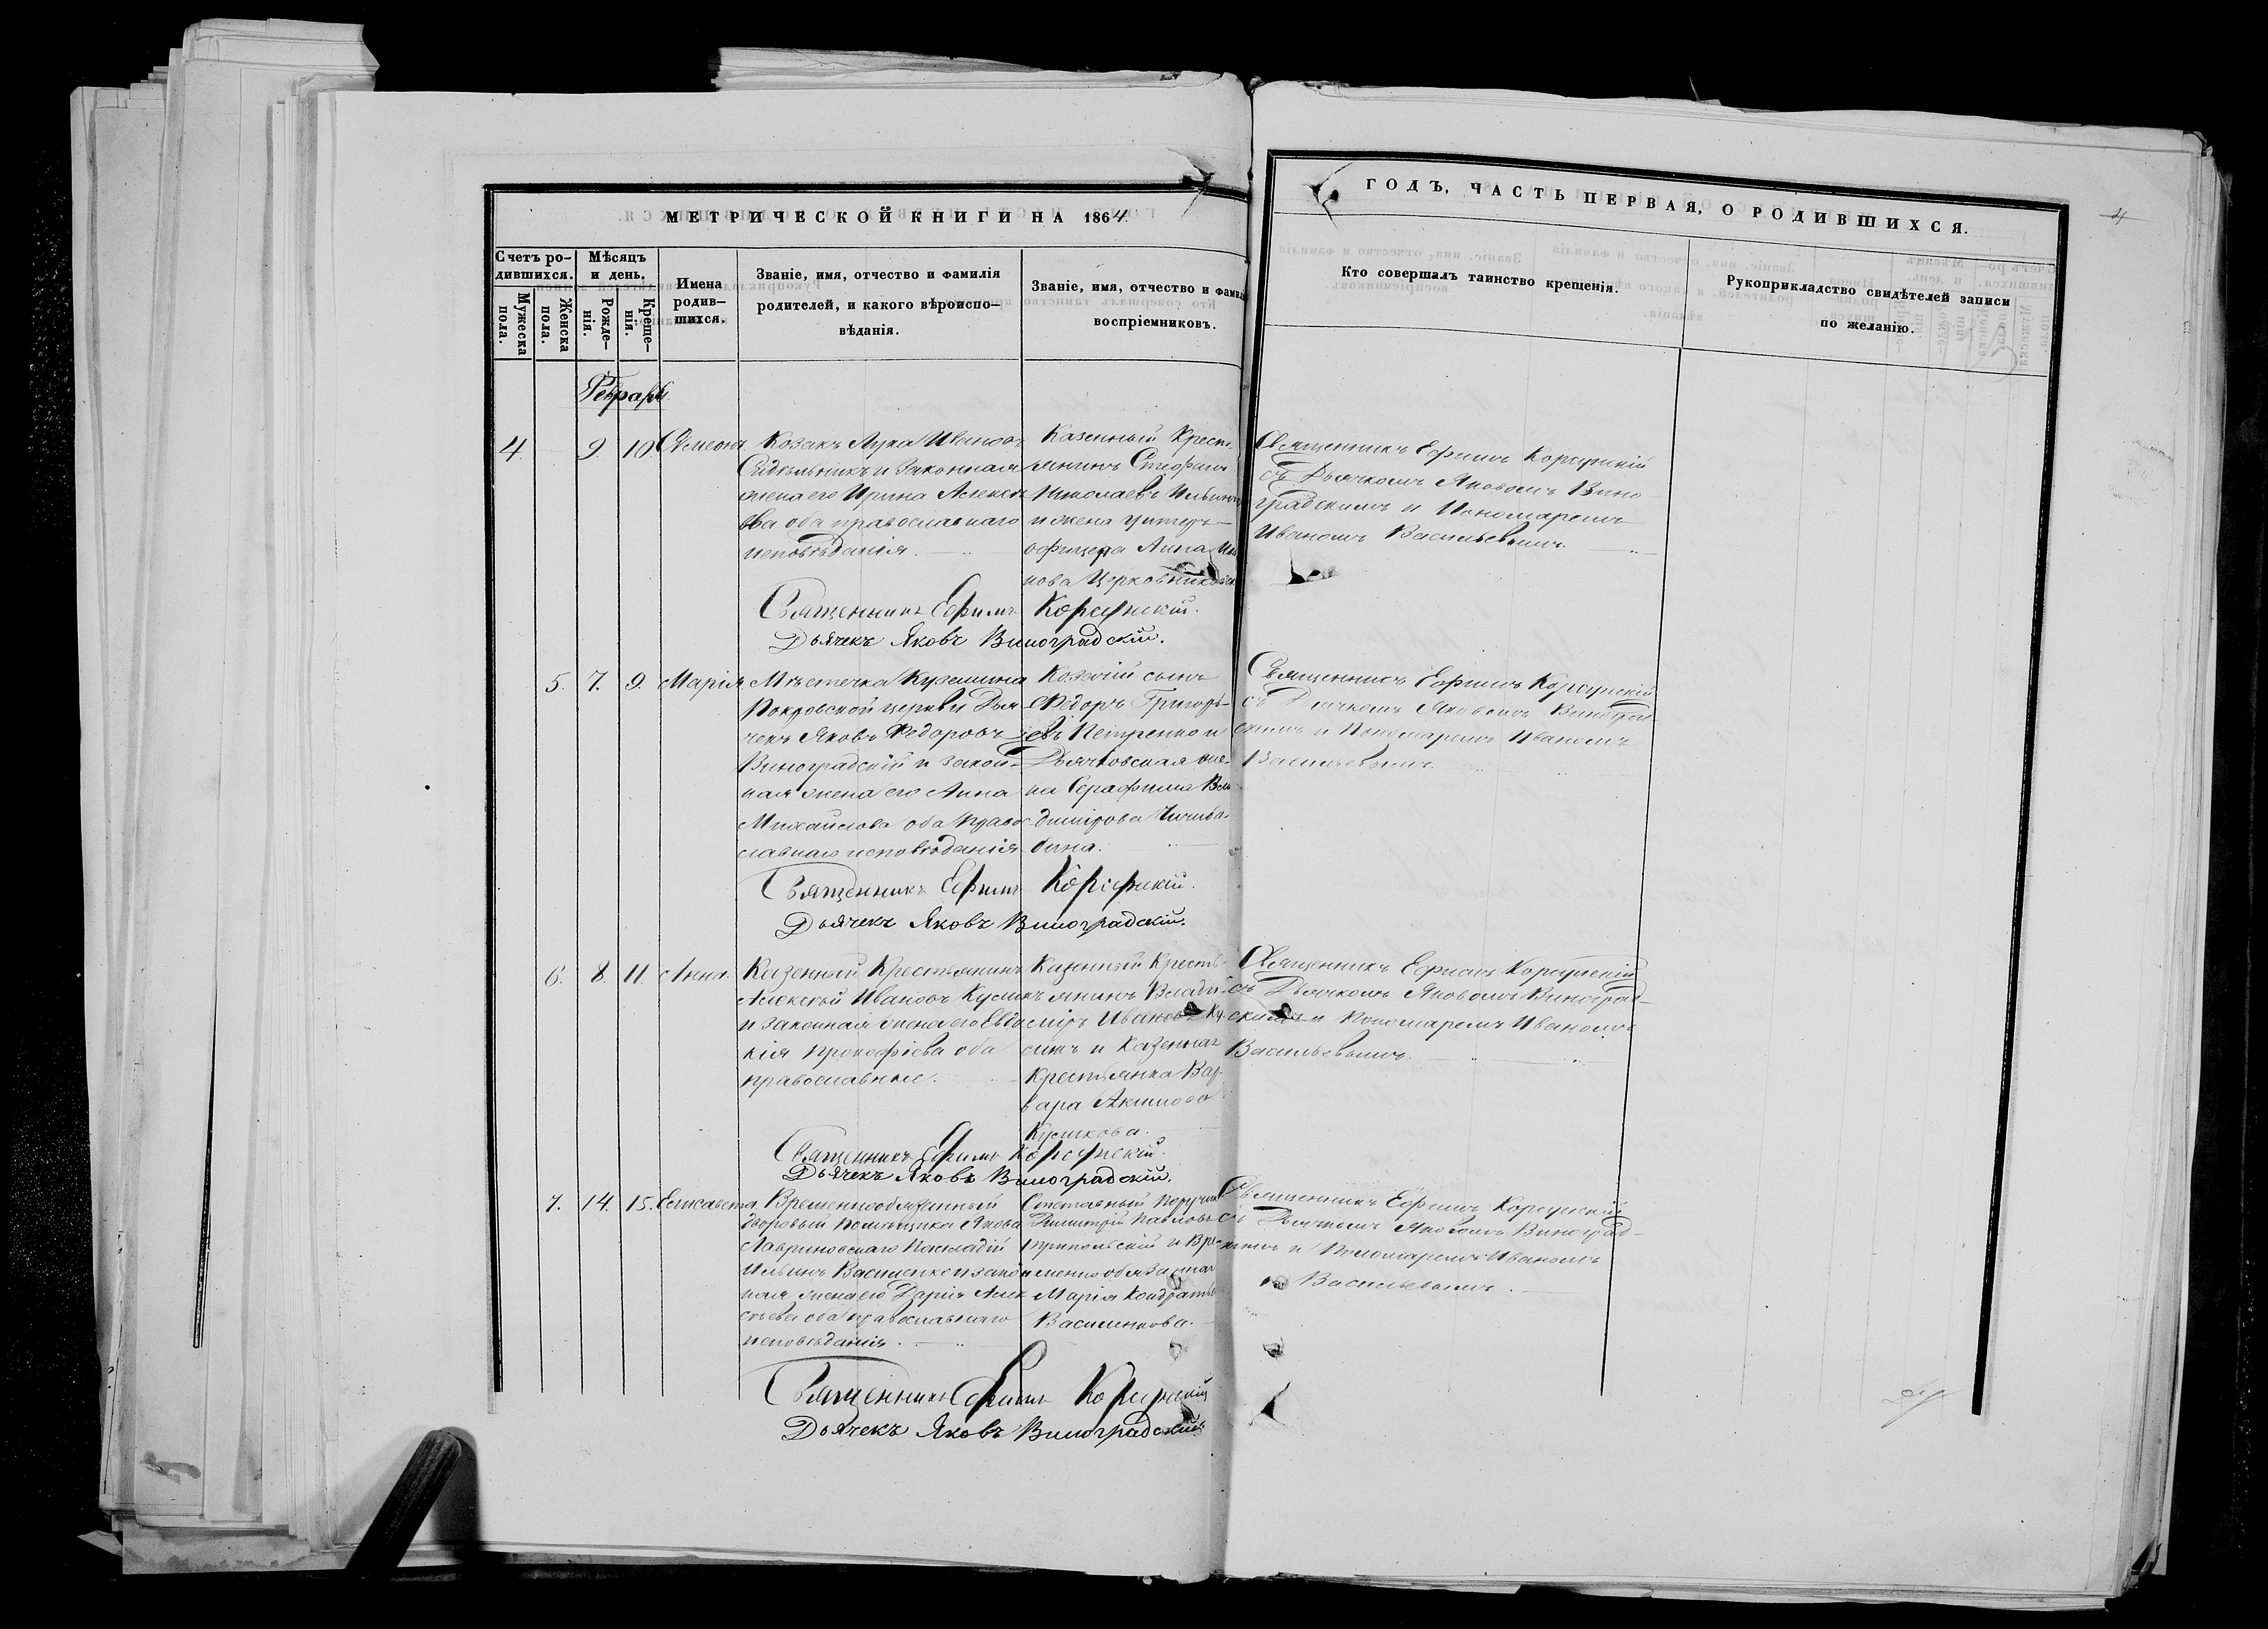 МЕТРИЧЕСКОЙ КНИГИ НА 1864.
ГОДЪ, ЧАСТЬ ПЕРВАЯ, О РОДИВШИХСЯ.
4
Счетъ ро-
дившихся.
Мужеска
пола.
Женска
пола.
Мѣсяцъ
и день.
Рожде-
нія.
Креще-
нія.
Имена
родив-
шихся.
Званіе, имя, отчество и фамилія
родителей, и какого вѣроиспо-
вѣданія.
Званіе, имя, отчество и фамил
воспріемниковъ.
Кто совершалъ таинство крещенія.
Рукоприкладство свидѣтелей записи
по желанію.
4. 9. 10 Симеонъ
Козакъ Лука Ивановъ
и Законная
жена его Ирина
ва оба православнаго
исповѣданія.
Казенный Кресть
янинъ Стефанъ
Николаевъ
и жена унтеръ-
офицера Анна
нова
Священникъ Ефимъ Корсунскій
съ Дьячкомъ Яковомъ Вино
градскимъ и Пономаремъ
Иваномъ Васильевымъ.
Священникъ Ефимъ Корсунскій.
Дьячекъ Яковъ Виноградскій.
5. 7. 9. Марія
Мѣстечка
Покровской церкви Дья
чекъ Яковъ Федоровъ
Виноградскій и закон-
ная жена его Анна
Михайлова оба право
славнаго исповѣданія
Козачій сынъ
Федоръ Григорь-
евъ Петренко и
Дьячковская же-
на Серафима Вла
димірова
Священникъ Ефимъ Корсунскій
съ Дьячкомъ Яковомъ Виноград
скимъ и Пономаремъ Иваномъ
Васильевымъ.
Священникъ Ефимъ Корсунскій.
Дьячекъ Яковъ Виноградскій.
6. 8. 11. Анна.
Казенный Крестьянинъ
Алексѣй Ивановъ
и законная жена его Евдо
кія Прокофіева оба
православные.
Казенный Кресть-
янинъ Влади
міръ Ивановъ
и Казенная
Крестьянка Вар-
вара Акимова
Священникъ Ефимъ Корсунскій
съ Дьячкомъ Яковомъ Виноград-
скимъ и Пономаремъ Иваномъ
Васильевымъ.
Священникъ Ефимъ Корсунскій.
Дьячекъ Яковъ Виноградскій.
7. 14. 15. Елисавета.
Временнообязанный
дворовый помѣщика Якова
Лавриновскаго
Ильинъ Василенко и закон
ная жена его Дарія Алек
сѣева оба православнаго
исповѣданія.
Отставный поручикъ
Димитрій Павловъ
и Вре
менно обязанная
Марія Кондратьев
Василенкова.
Священникъ Ефимъ Корсунскій
съ Дьячкомъ Яковомъ Виноград-
скимъ и Пономаремъ Иваномъ
Васильевымъ.
Священникъ Ефимъ Корсунскій
Дьячекъ Яковъ Виноградскій.